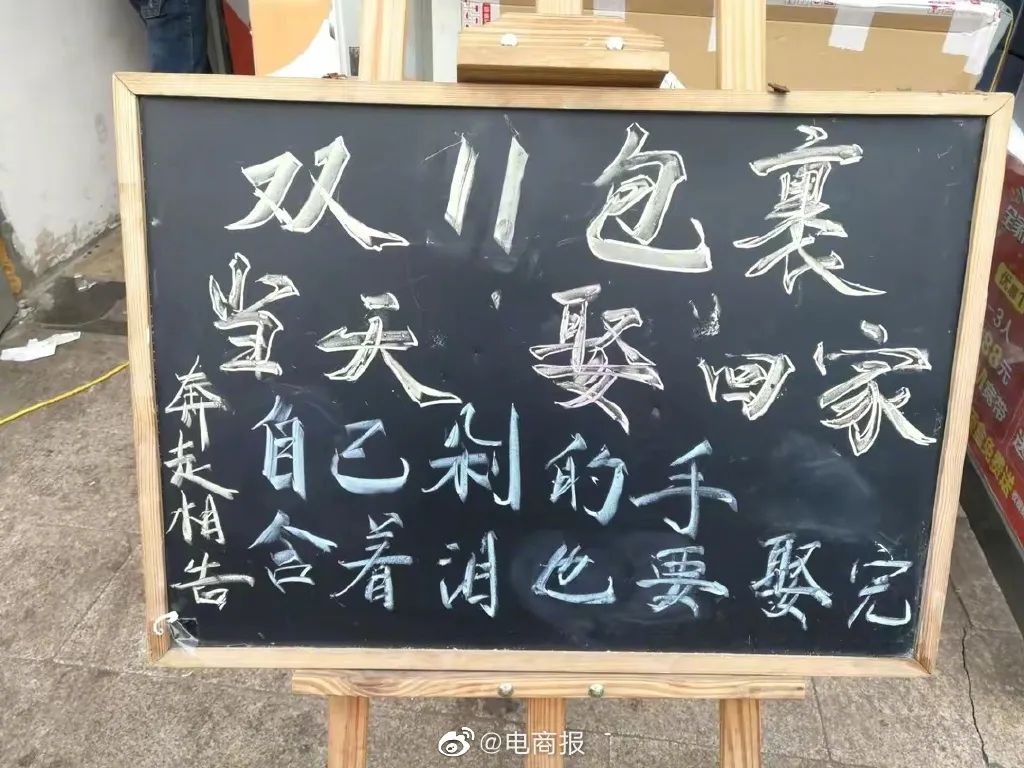 双11包裹
当天娶回家
自己剁的手
含着泪也要娶完
奔走相告
@电商报